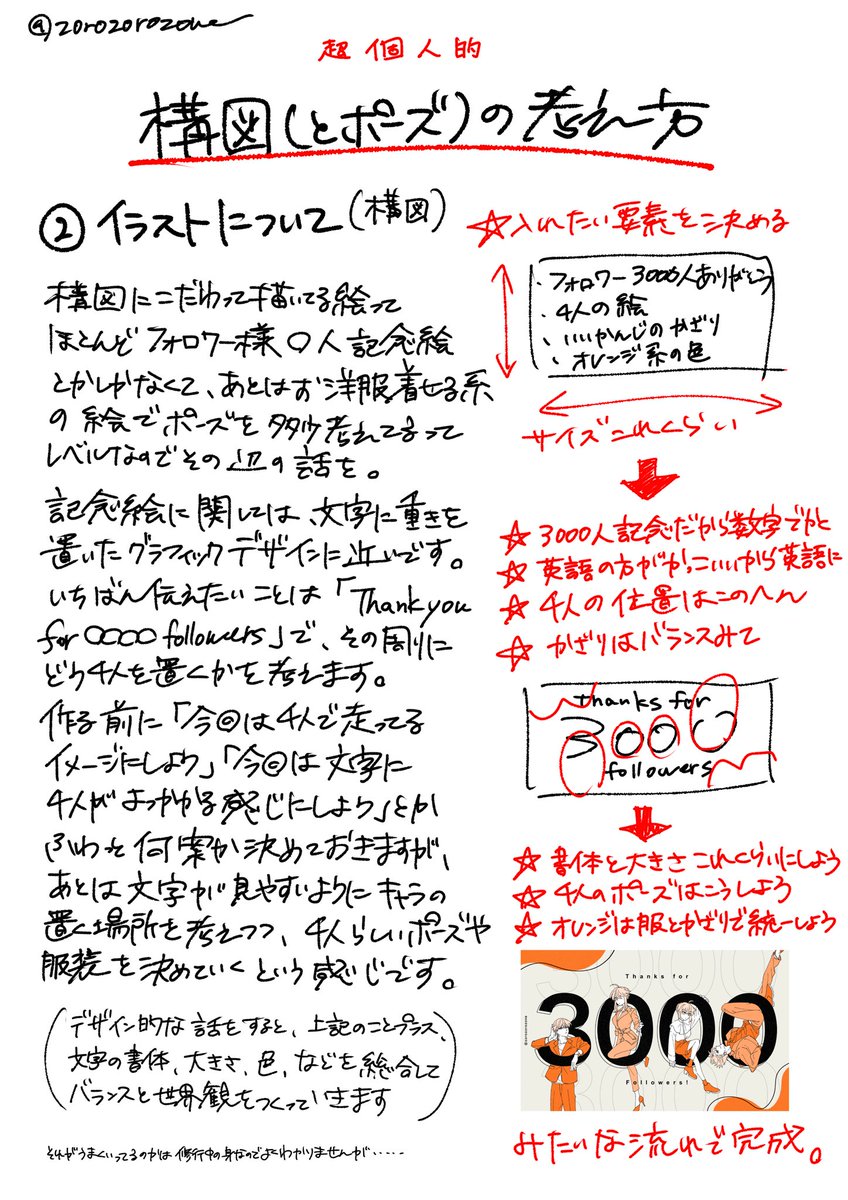 @zorozorozone
超個人的
構図(とポーズ)の考え方
② イラストについて(構図)
構図にこだわって描いてる絵って
ほとんどフォロワー様〇人記念絵
とかしかなくて、あとはお洋服着せる系
の絵でポーズを多少考えてるって
レベルなのでその辺の話を。
記念絵に関しては、文字に重きを
置いたグラフィックデザインに近いです。
いちばん伝えたいことは「Thank you
for 〇〇〇〇 followers」で、その周りに
どう4人を置くかを考えます。
作る前に「今回は4人で走ってる
イメージにしよう」「今回は文字に
4人がよっかかる感じにしよう」とか
ふわっと何案か決めておきますが、
あとは文字が見やすいようにキャラの
置く場所を考えつつ、4人らしいポーズや
服装を決めていくという感じです。
(デザイン的な話をすると、上記のことプラス、
文字の書体、大きさ、色、などを総合して
バランスと世界観をつくっていきます)
それがうまくいってるのかは修行中の身なのでよくわかりませんが‥‥‥
☆入れたい要素を決める
・フォロワー3000人ありがとう
・4人の絵
・いいかんじのかざり
・オレンジ系の色
サイズこれくらい
☆ 3000人記念だから数字でかと
☆ 英語の方がかっこいいから英語に
☆ 4人の位置はこのへん
☆ かざりはバランスみて
thanks for
3000
followers
☆ 書体と大きさこれくらいにしよう
☆ 4人のポーズはこうしよう
☆ オレンジは服とかざりで統一しよう
Thanks for
3000
Followers!
@zorozorozone
みたいな流れで完成。